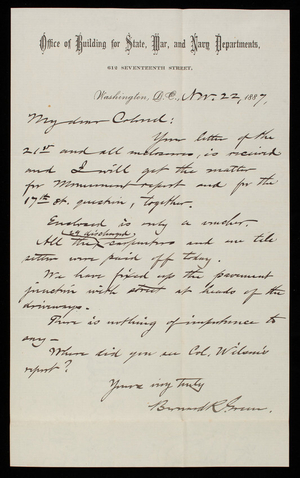 Office of Building for State, War, and Navy Departments,
812 SEVENTEENTH STREET,
Washington, D.C., Nov. 22, 1887.
My dear Colonel:
Your letter of the
21st and all inclosures, is received
and I will get the matter
for Monument report and for the
17th st. question, together.
Enclosed is only a voucher.
(24 discharged)
All the carpenters and one tile
setter were paid off today.
We have fixed up the pavement
junction with street at heads of the
driveways.
There is nothing of importance to
say—
Where did you see Col. Wilson's
report?
Yours very truly
Bernard R. Green.